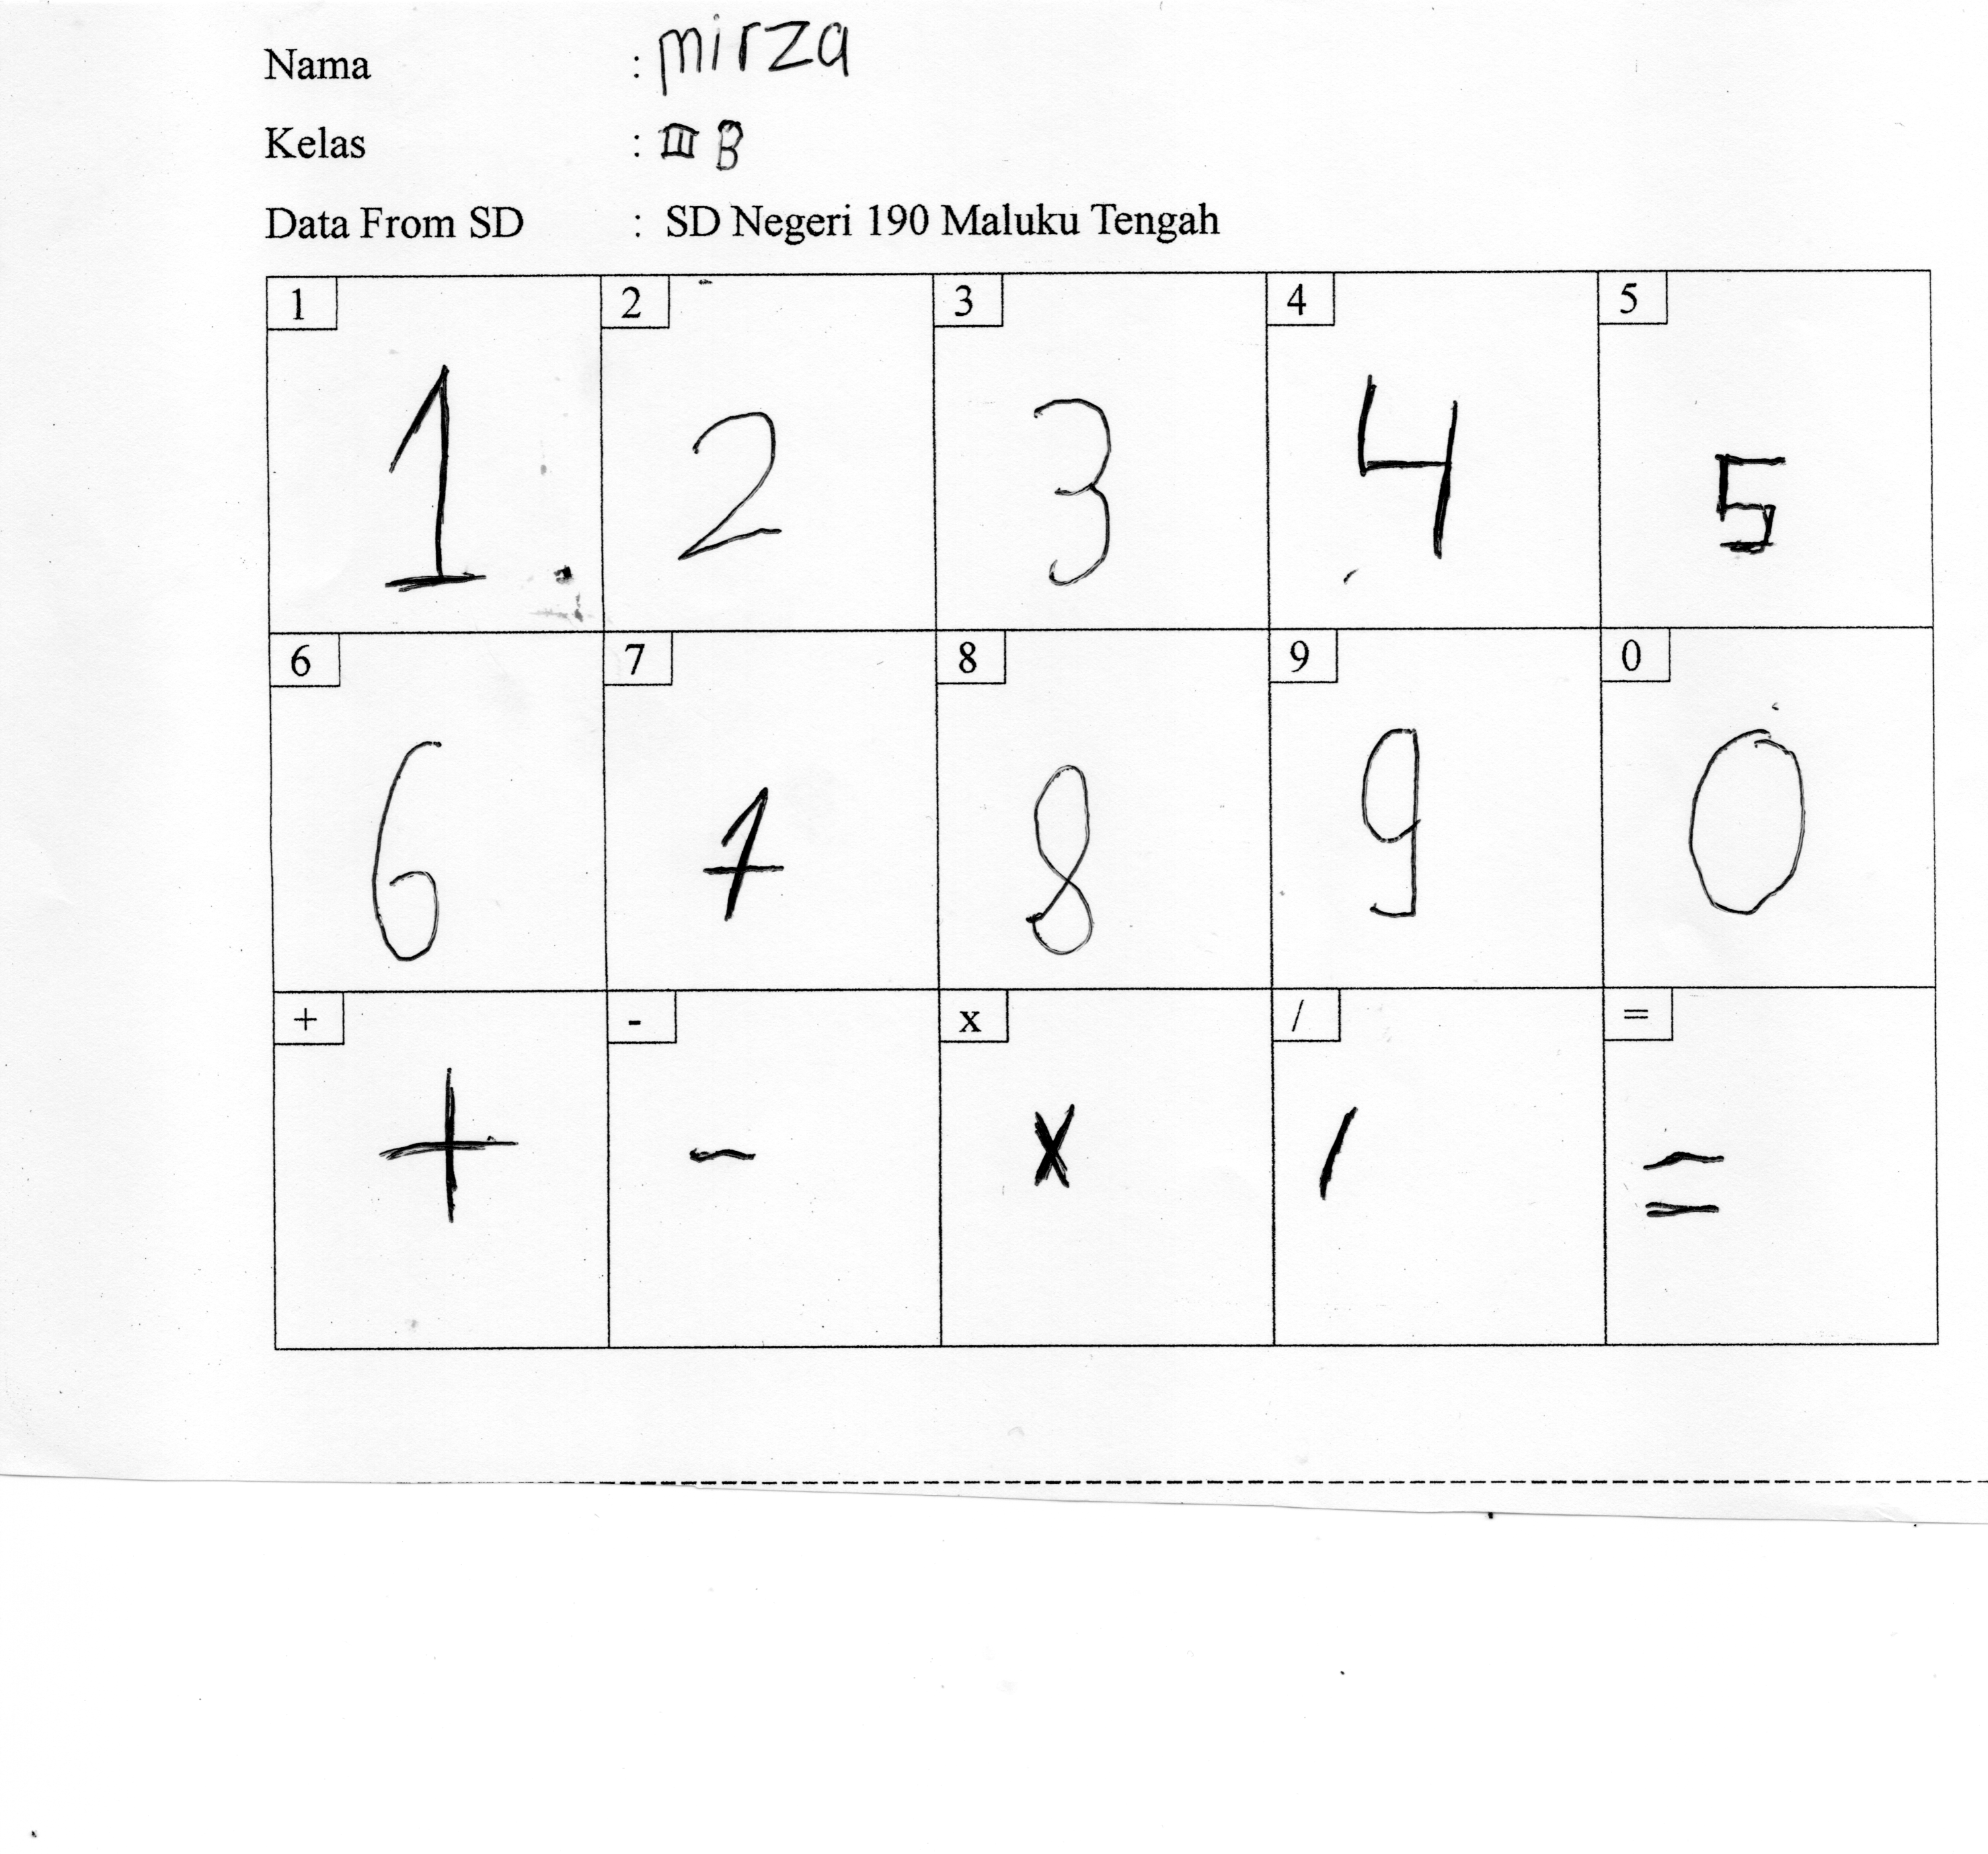 Nama : mirza
Kelas : III B
Data From SD : SD Negeri 190 Maluku Tengah
1 2 3 4 5
1 2 3 4 5
6 7 8 9 0
6 7 8 9 0
+ - x / =
+ - x / =